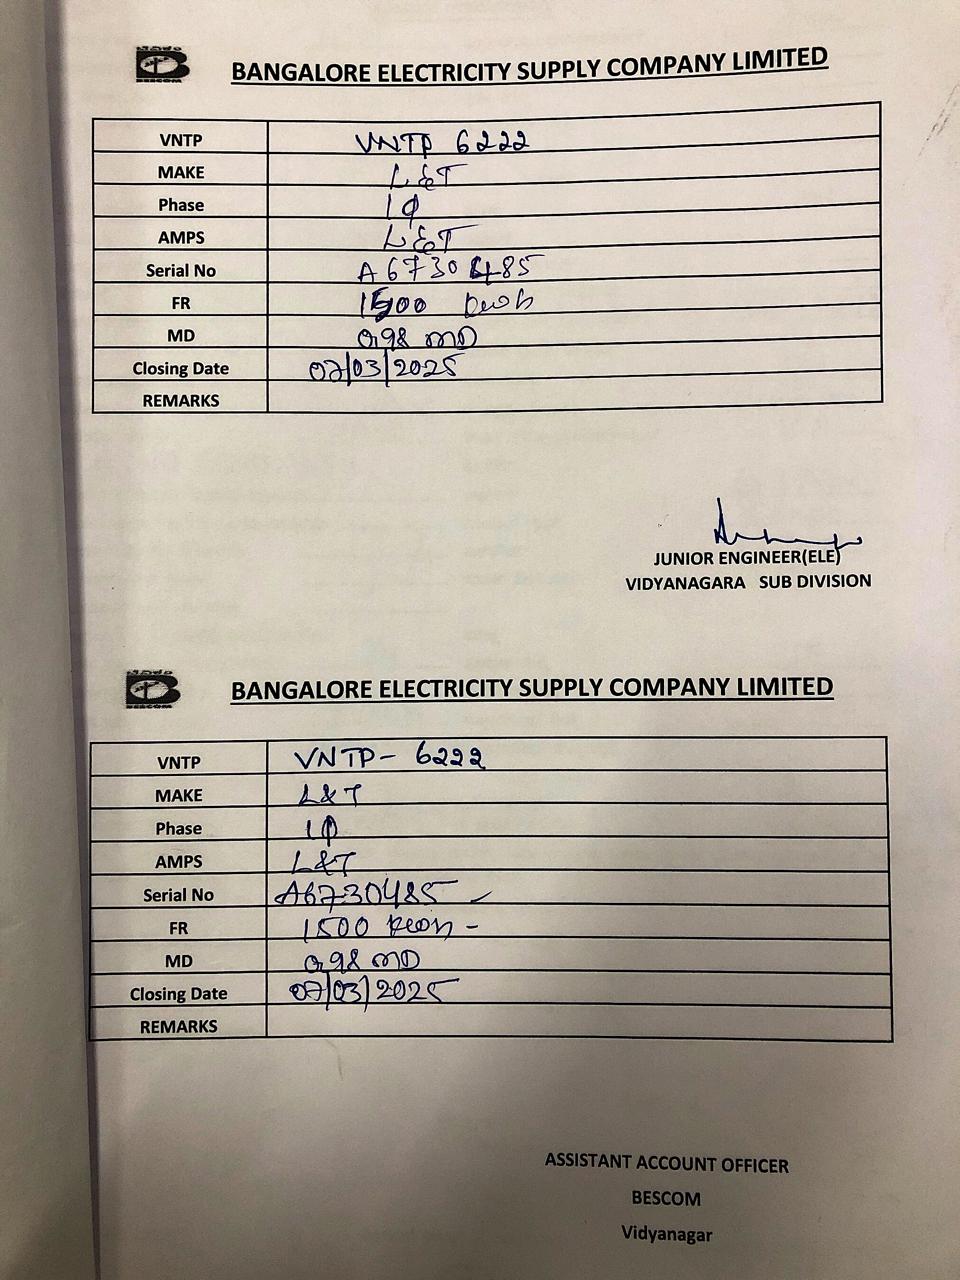 BESCOM
BANGALORE ELECTRICITY SUPPLY COMPANY LIMITED
VNTP VNTP 6222
MAKE L&T
Phase 1Φ
AMPS L&T
Serial No A6730485
FR 1500
MD 0.98 MD
Closing Date 07/03/2025
REMARKS
JUNIOR ENGINEER(ELE)
VIDYANAGARA SUB DIVISION
BESCOM
BANGALORE ELECTRICITY SUPPLY COMPANY LIMITED
VNTP VNTP- 6222
MAKE L&T
Phase 1Φ
AMPS L&T
Serial No A6730485
FR 1500
MD 0.98 MD
Closing Date 07/03/2025
REMARKS
ASSISTANT ACCOUNT OFFICER
BESCOM
Vidyanagar